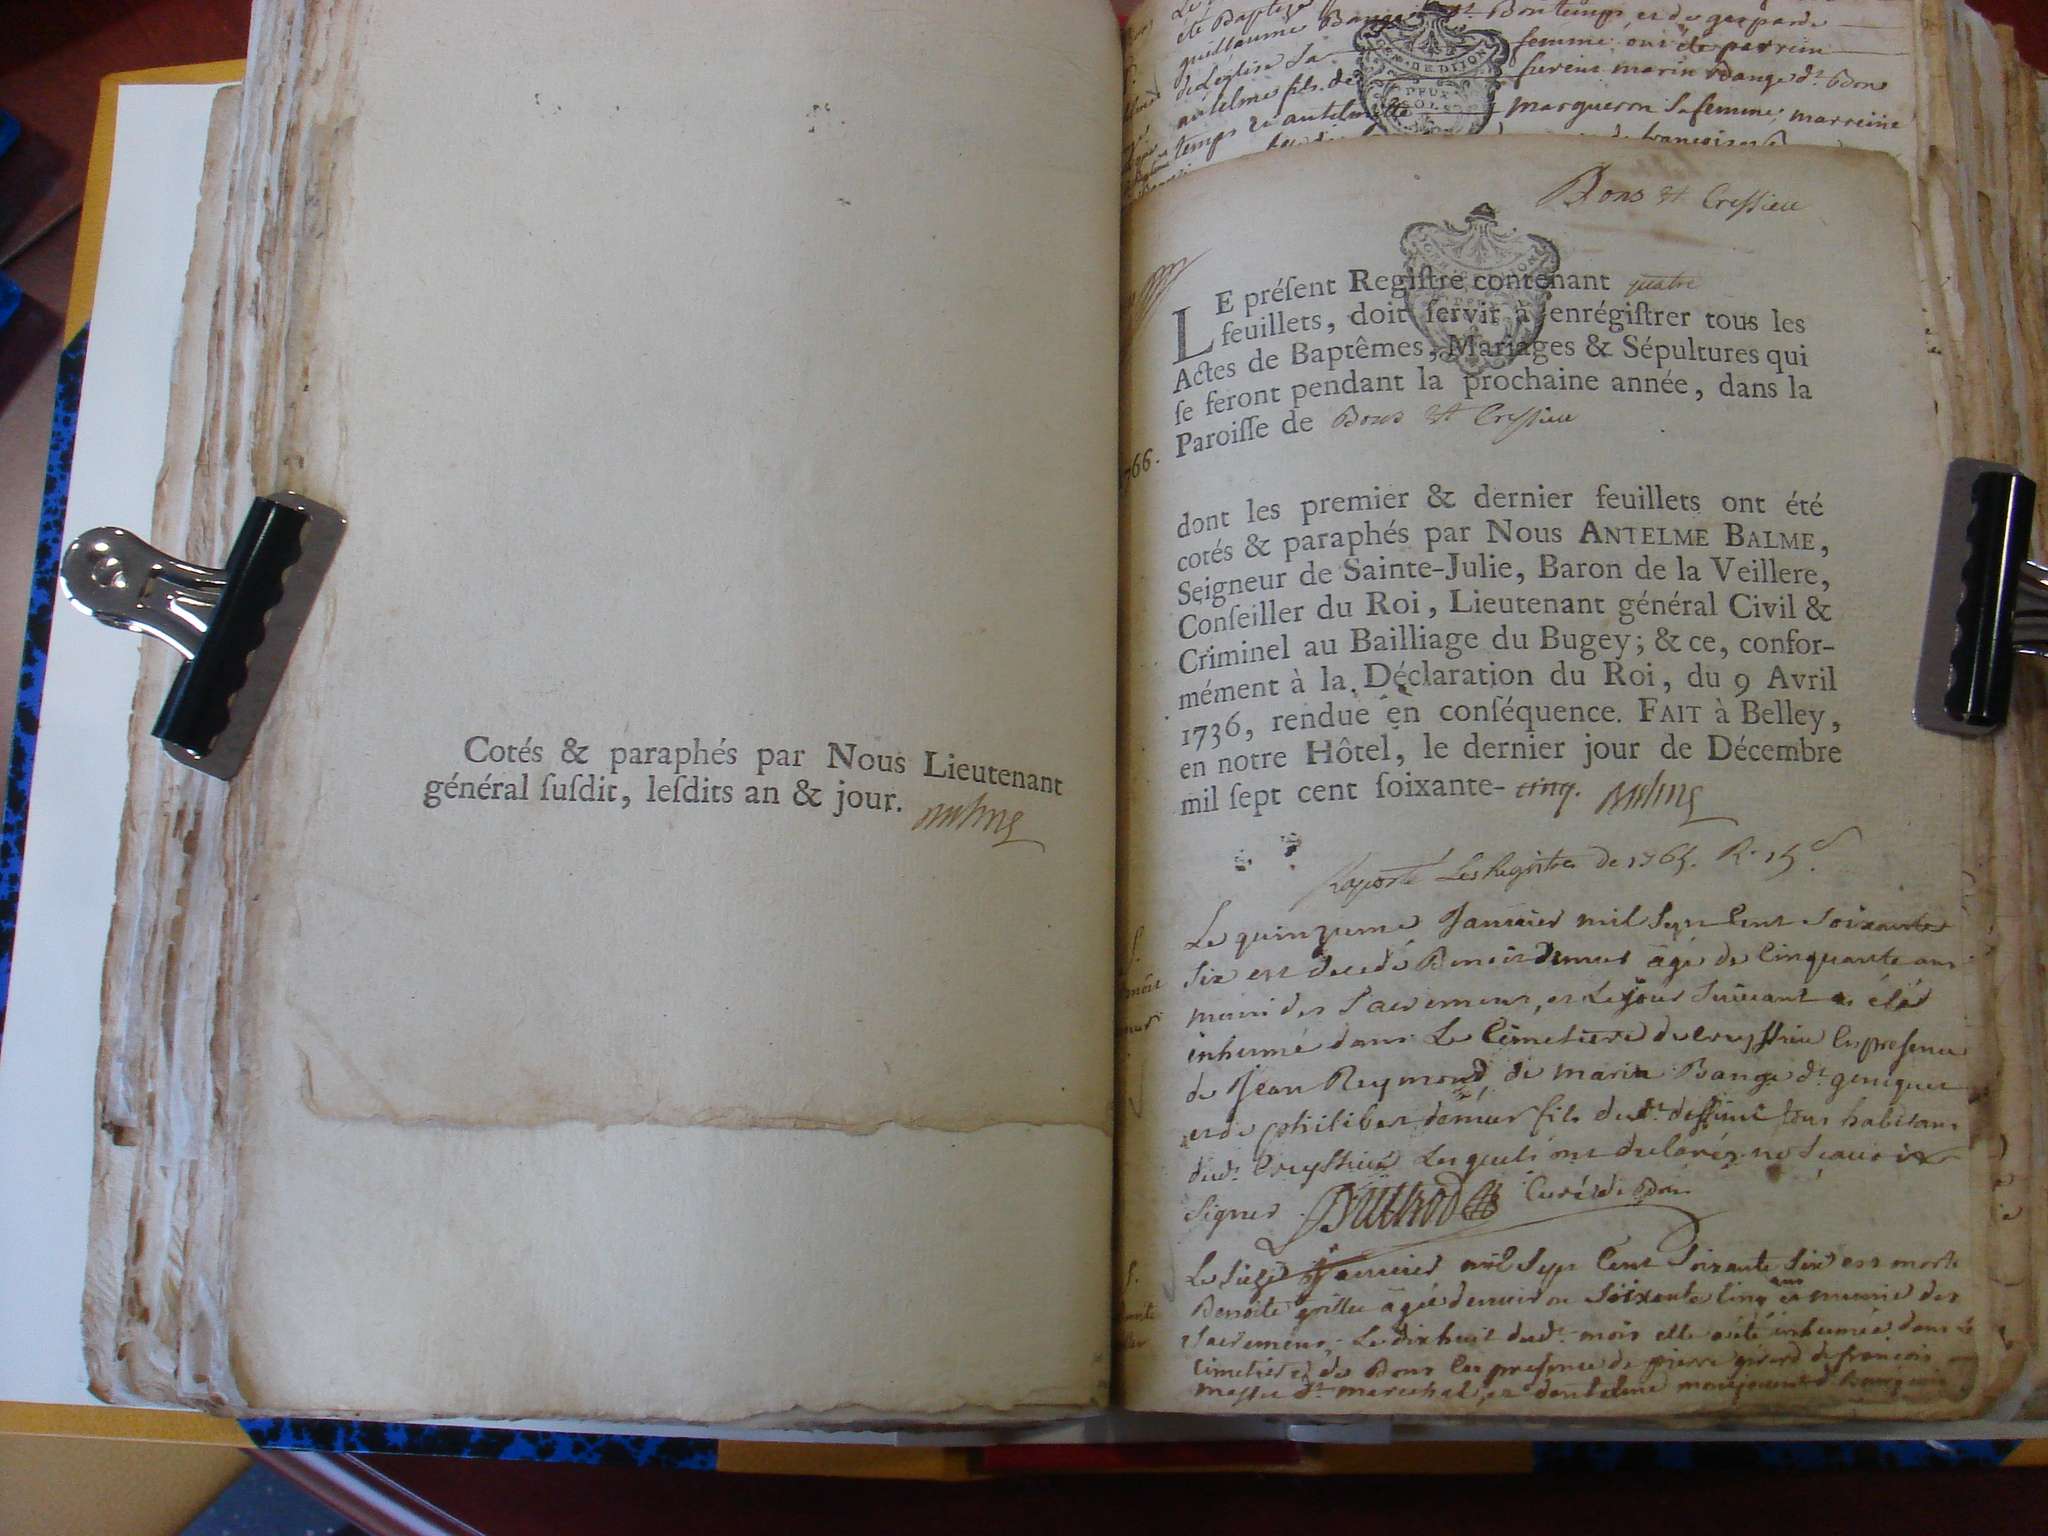 Cotés & paraphés par Nous Lieutenant
général ſuſdit, leſdits an & jour.
été Baptizé
guillaume Bange dt. Bontemps, et de gasparde
de L'église Sa femme, oui été parrein
antelme fils de furent marin Bange dt. Bon
temps et antelmette marqueron Sa femme, marreine
GEN. DE DIJON
DEUX
SOLS
Bons et Creſſieu
LE préſent Regiſtre contenant quatre
feuillets, doit ſervir à enrégiſtrer tous les
Actes de Baptêmes, Mariages & Sépultures qui
ſe feront pendant la prochaine année, dans la
Paroiſſe de Bons et Creſſieu
1766.
dont les premier & dernier feuillets ont été
cotés & paraphés par Nous ANTELME BALME,
Seigneur de Sainte-Julie, Baron de la Veillere,
Conſeiller du Roi, Lieutenant général Civil &
Criminel au Bailliage du Bugey; & ce, confor-
mément à la Déclaration du Roi, du 9 Avril
1736, rendue en conſéquence. FAIT à Belley,
en notre Hôtel, le dernier jour de Décembre
mil ſept cent ſoixante-cinq.
Raporté Les Registres de 1765. R. 15 s
Le quinzieme Janvier mil Sept Cent Soixante
Six est decedé Benoit demur âgé de Cinquante ans
muni des Sacremens, et Le jour Suivant a été
inhumé dans Le Cimetiere de creyſſieu En presence
de Jean Reymond, de marin Bange dt. geniquet
et de philibert demur fils dudt. deffunt tous habitans
dudt. Creyſſieu Lesquels ont declarés ne Scavoir
Signer. Curé de Bons
Le Seize Janvier mil Sept Cent Soixante Six est morte
Benoite grillet âgée d'environ Soixante Cinq ans munie des
Sacremens, Le dix huit dudt. mois elle a été inhumée dans Le
Cimetiere de Bons En presence de pierre girard de francois
dt. marechal, et d'antelme